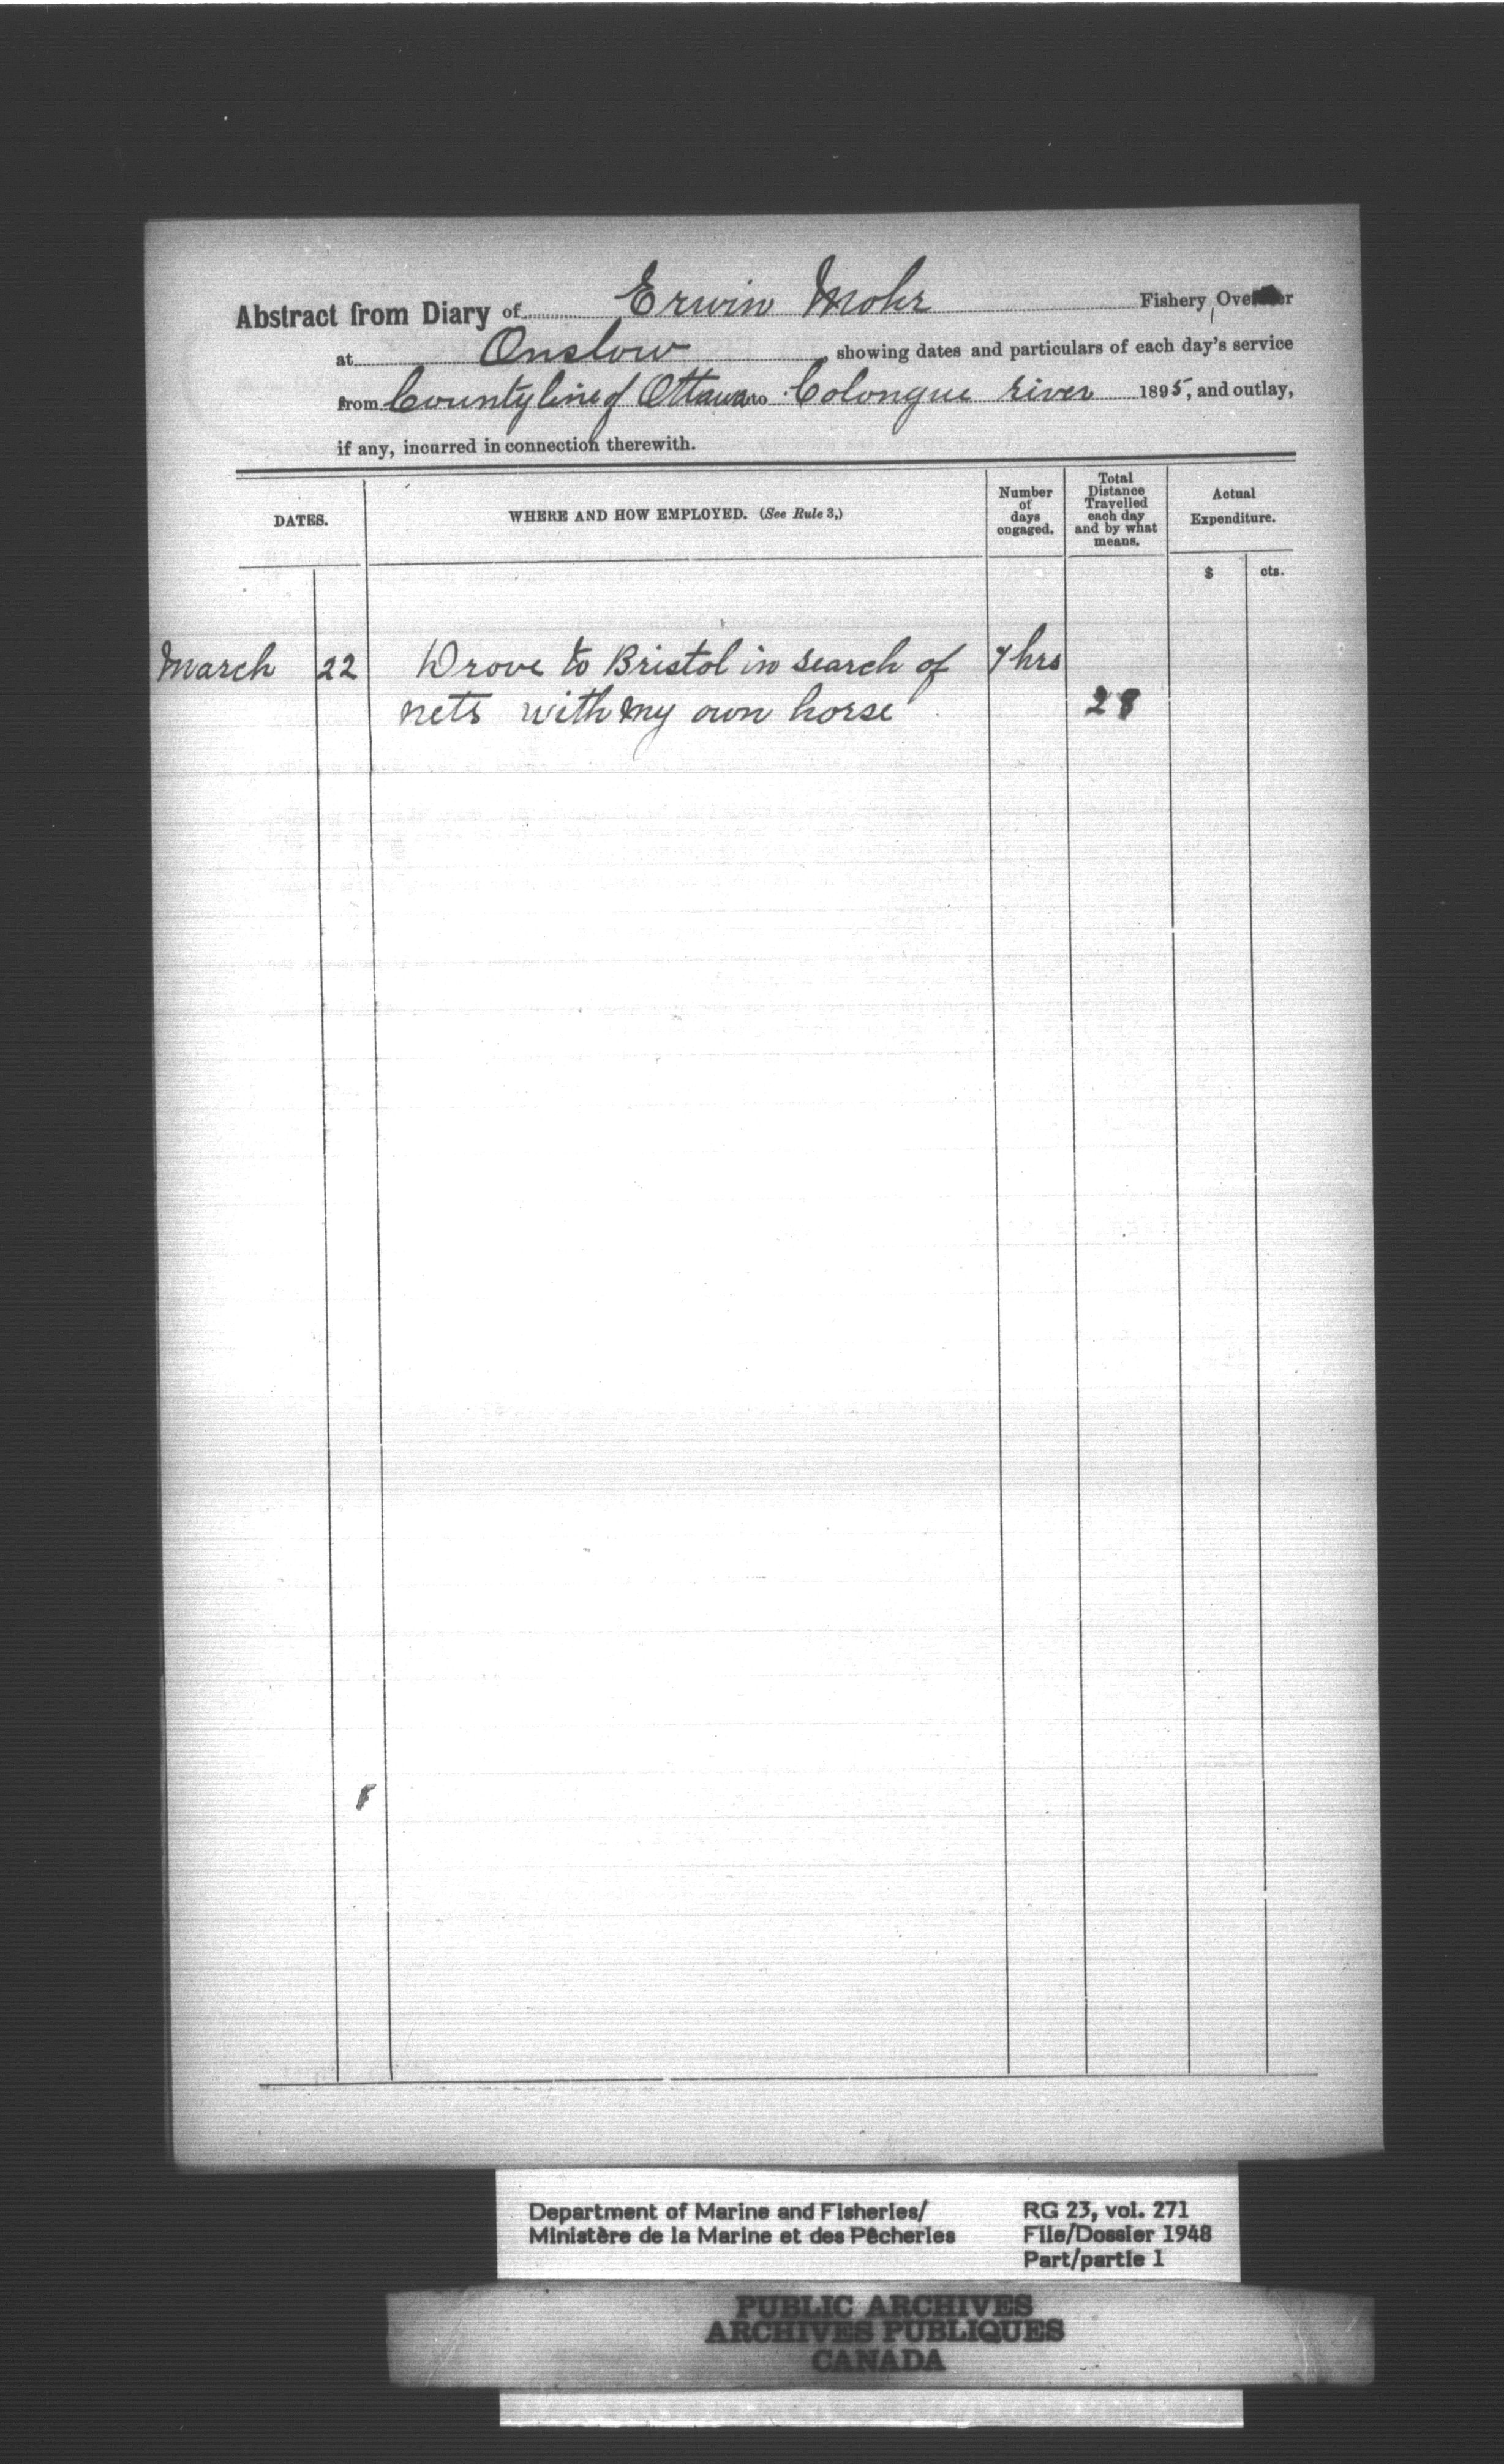 Abstract from Diary of Erwin Mohr Fishery Overseer
at Onslow, showing dates and particulars of each day's service
from County line of Ottawa to Colongue river 1895, and outlay,
if any, incurred in connection therewith.
DATES.
WHERE AND HOW EMPLOYED. (See Rule 3,)
Number
of
days
engaged.
Total
Distance
Travelled
each day
and by what
means.
Actual
Expenditure.
$ cts.
March 22 Drove to Bristol in search of 7 hrs
nets with my own horse 28
Department of Marine and Fisheries/
Ministère de la Marine et des Pêcheries
RG 23, vol. 271
File/Dossier 1948
Part/partie 1
PUBLIC ARCHIVES
ARCHIVES PUBLIQUES
CANADA